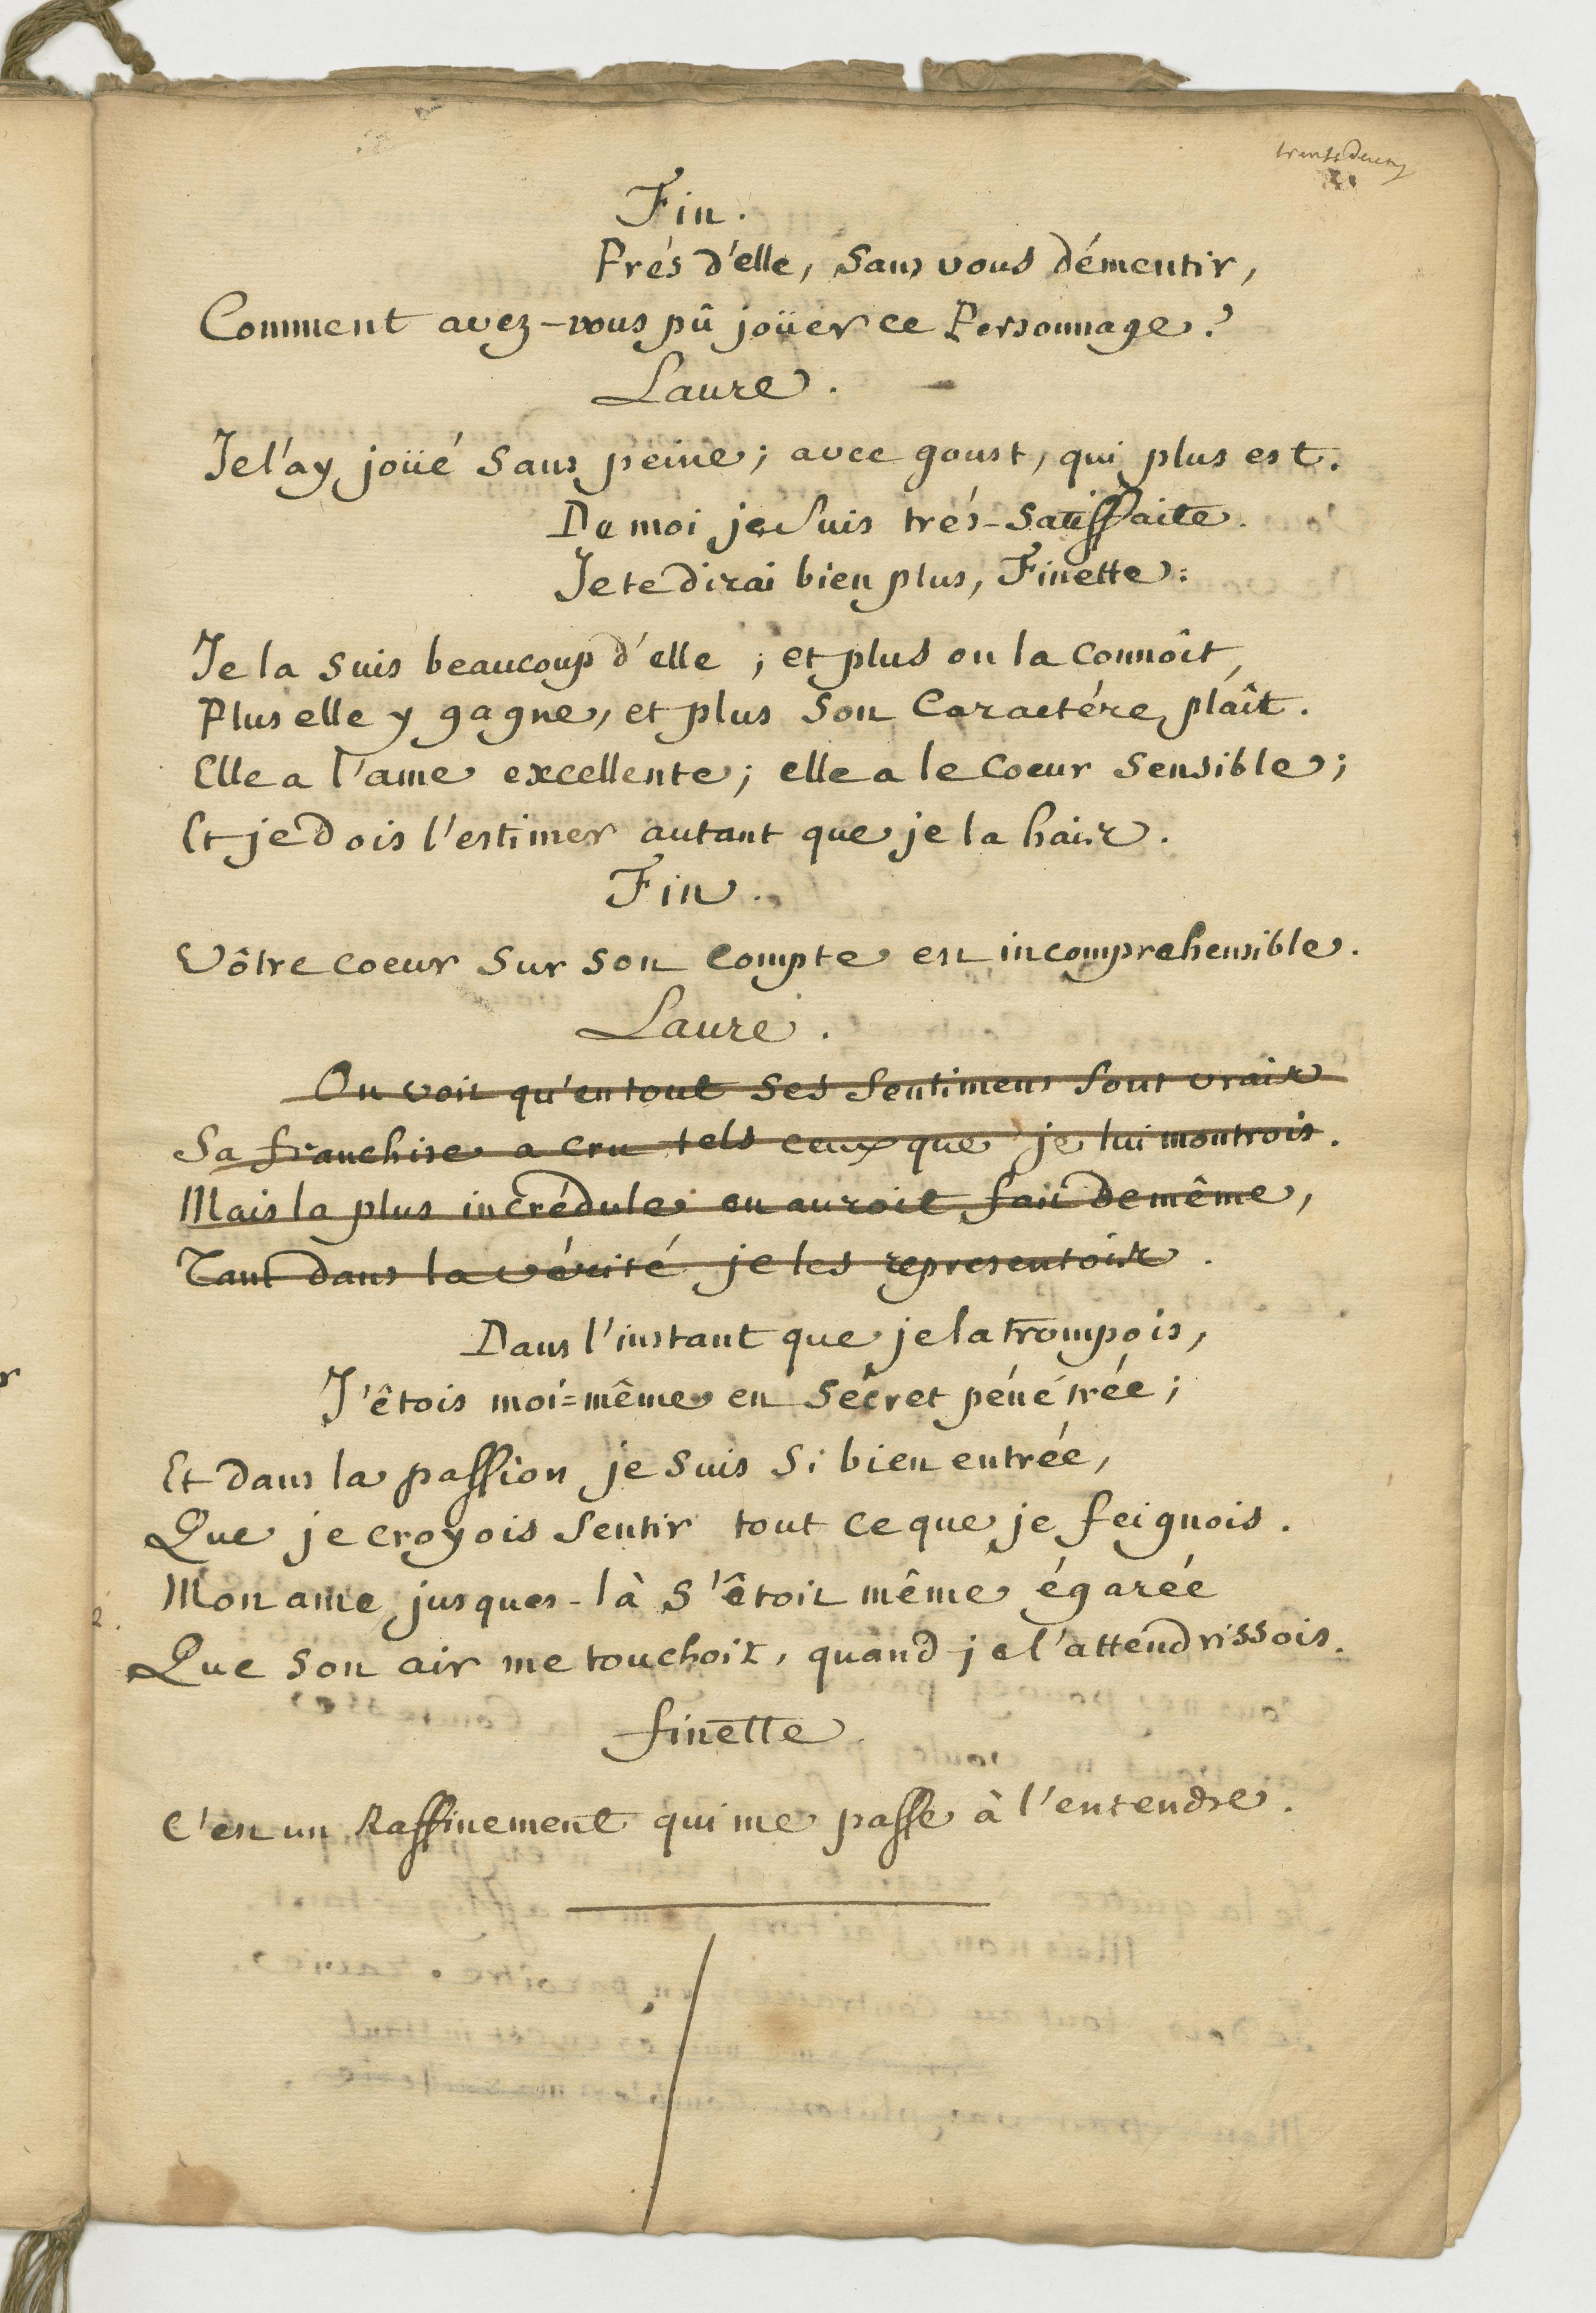 trente deux
Fin.
Prés d'elle, Sans vous démentir,
Comment avez-vous pû joüer ce Personnage?
Laure.
Je l'ay joüé Sans peine; avec goust, qui plus est.
De moi je Suis trés-Satisfaite.
Je te dirai bien plus, Finette:
Je la Suis beaucoup d'elle; et plus on la connoît,
Plus elle y gagne, et plus Son Caractére plaît.
Elle a l'ame excellente; elle a le Coeur Sensible;
Et je dois l'estimer autant que je la hair.
Fin.
Vôtre coeur Sur Son Compte est incomprehensible.
Laure.
On voit qu'en tout Ses Sentimens Sont vrais
Sa franchise a cru tels ceux que je lui montrois.
Mais la plus incrédule en auroit fait de même,
Tant dans la vérité je les representois.
Dans l'instant que je la trompois,
J'êtois moi=même en Sécret pénétrée;
Et dans la passion je Suis Si bien entrée,
Que je croyois Sentir tout ce que je feignois.
Mon ame jusques-là S'êtoit même égarée
Que Son air me touchoit, quand je l'attendrissois.
finette
C'est un Raffinement qui me passe à l'entendre.